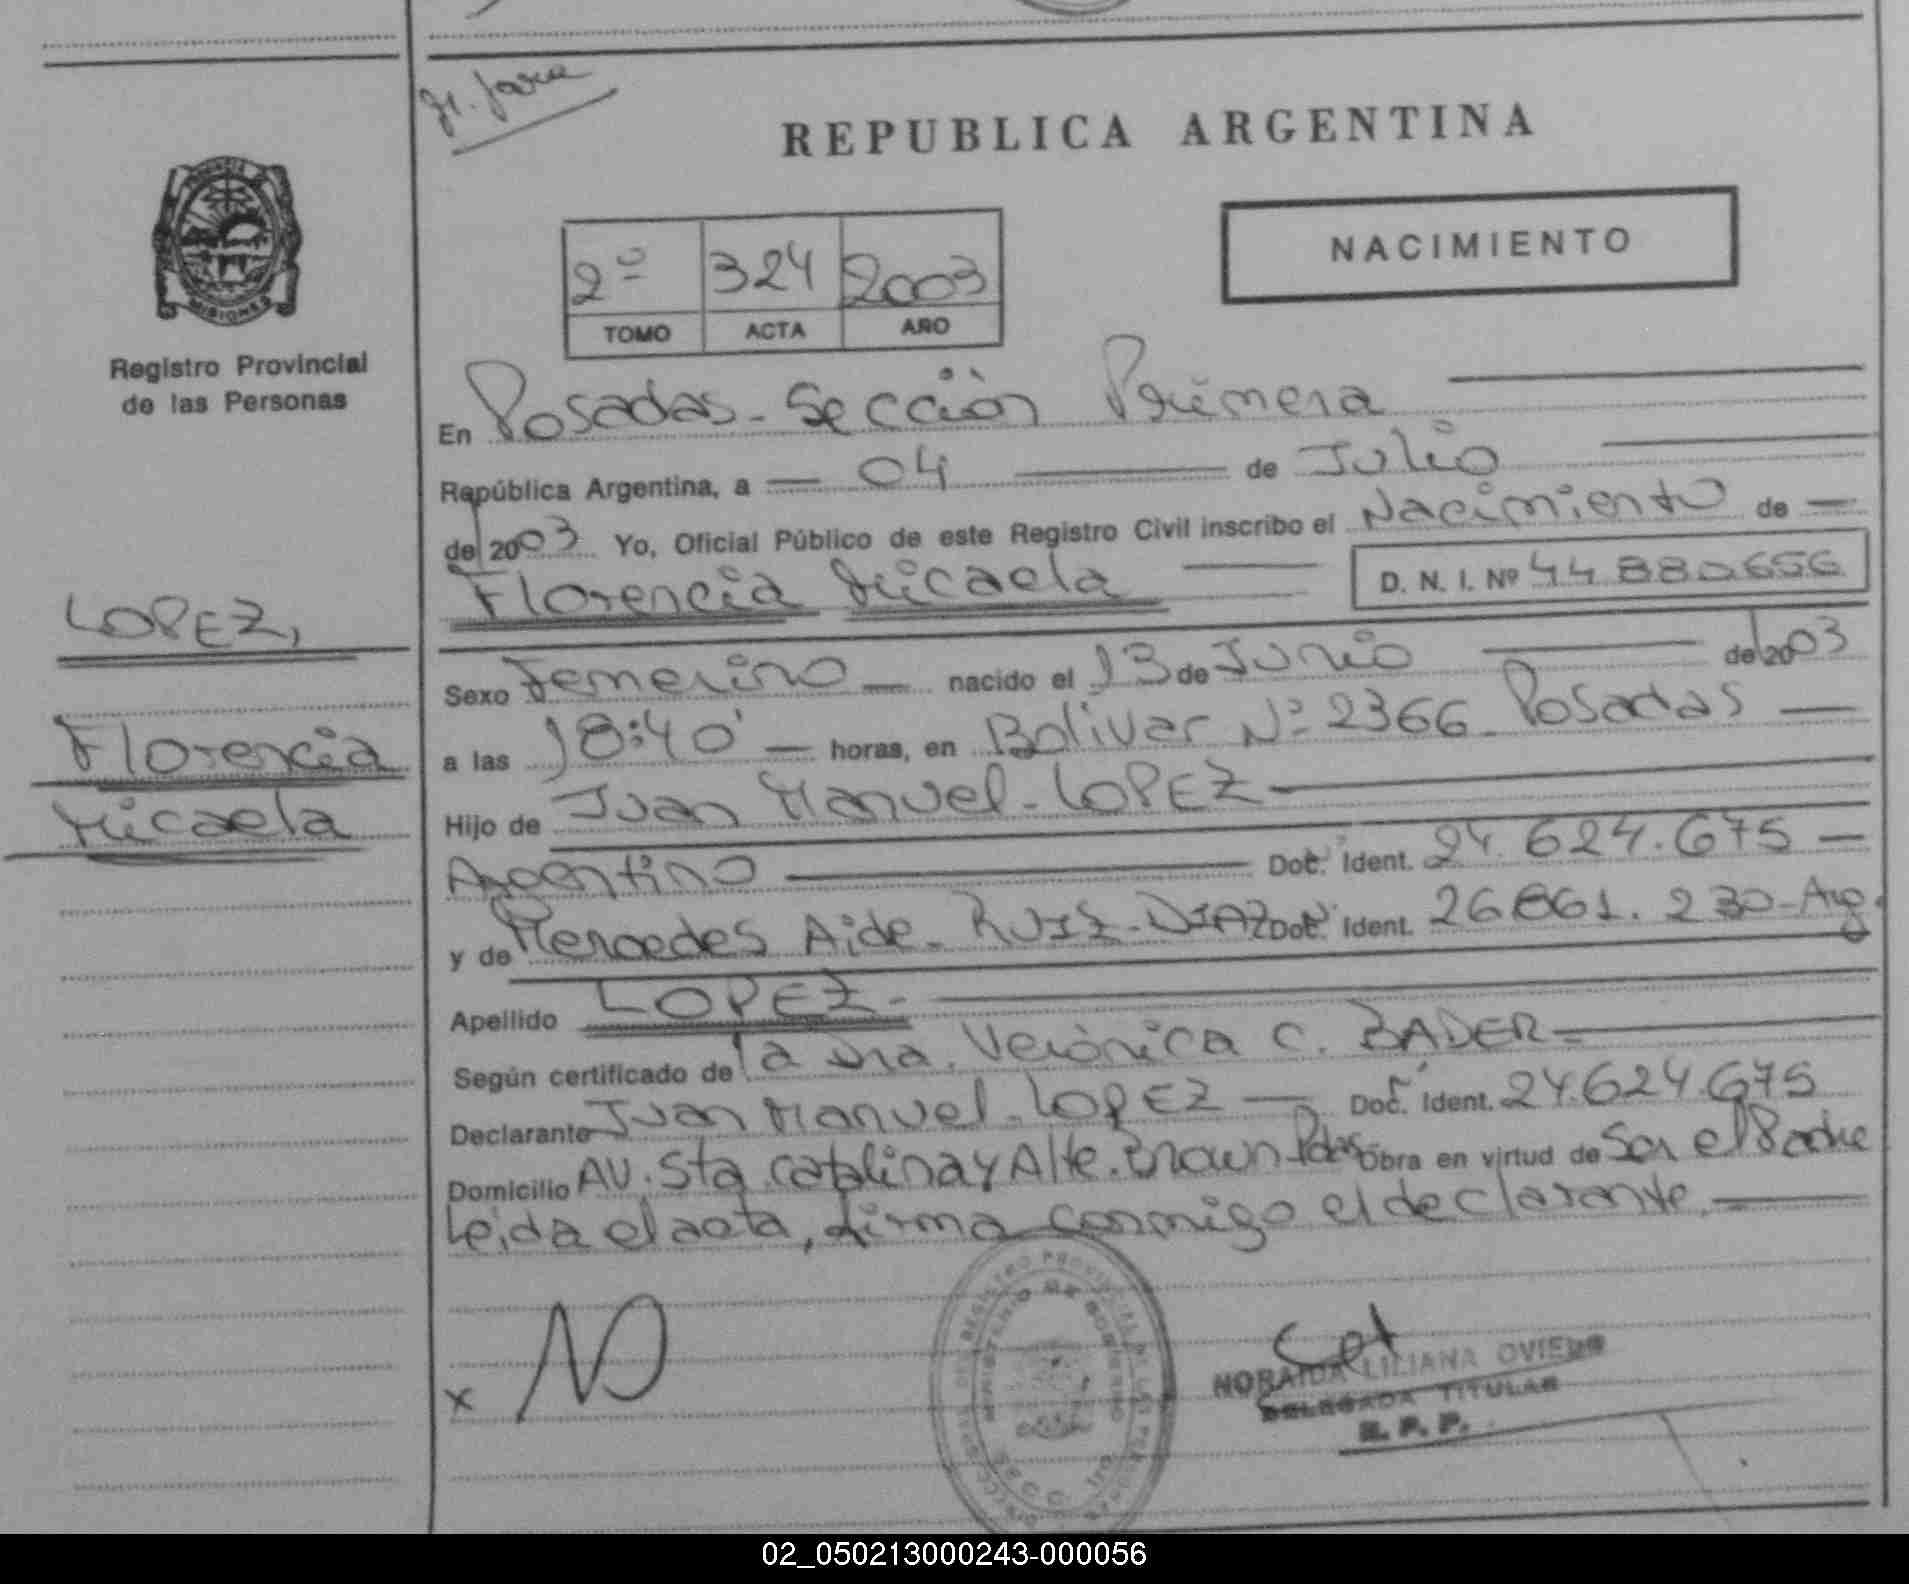 REPUBLICA ARGENTINA
NACIMIENTO
2º 324 2003
TOMO ACTA AÑO
MISIONES
Registro Provincial
de las Personas
LOPEZ,
Florencia
Micaela
En Posadas - Sección Primera
República Argentina, a 04 de Julio
de 2003 Yo, Oficial Público de este Registro Civil inscribo el Nacimiento de
Florencia Micaela D. N. I. Nº 44 880656
Sexo Femenino nacido el 13 de Junio de 2003
a las 18:40' horas, en Bolivar Nº 2366 - Posadas
Hijo de Juan Manuel - LOPEZ
Argentino Doc. Ident. 24.624.675
y de Mercedes Aide - RUIZ - DIAZ Doc. Ident. 26861.230 - Arg.
Apellido LOPEZ -
Según certificado de la Dra. Verónica C. BADER =
Declarante Juan Manuel - LOPEZ Doc. Ident. 24.624.675
Domicilio AV. Sta Catalina y Alte. Brown Pdas Obra en virtud de Ser el Padre
Leida el acta, firma conmigo el declarante.
x
REGISTRO PROVINCIAL DE LAS PERSONAS
MINISTERIO DE GOBIERNO
Secc. 1ra
NORAIDA LILIANA OVIEDO
DELEGADA TITULAR
R. P. P.
02_050213000243-000056